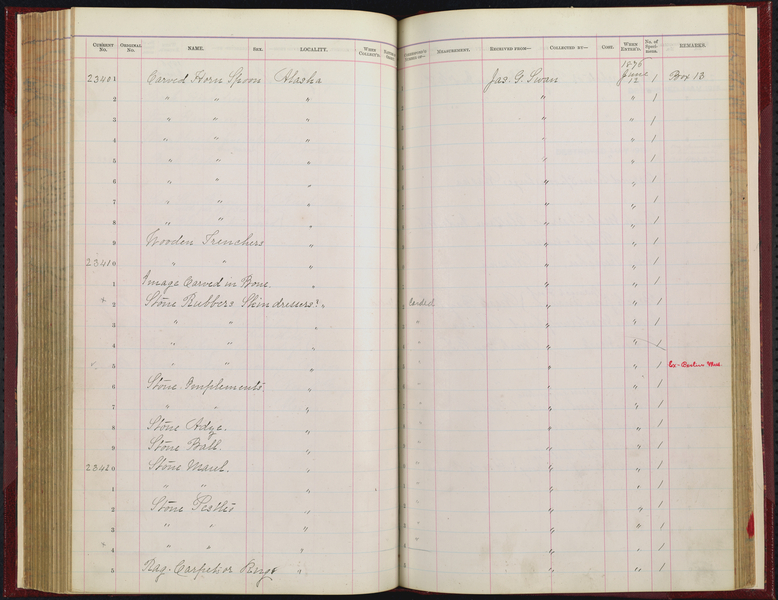 CURRENT No. ORIGINAL No. NAME. SEX. LOCALITY. WHEN COLLECT'D. MEASUREMENT. RECEIVED FROM— COLLECTED BY— COST. WHEN ENTER'D. No. of Specimens. REMARKS.
1876
23401 Carved Horn Spoon Alaska Jas. G. Swan June 12 1 Box 13
2 " " " " " 1
3 " " " " " 1
4 " " " " " 1
5 " " " " " 1
6 " " " " " 1
7 " " " " " 1
8 " " " " " 1
9 Wooden Trenchers " " " 1
23410 " " " " " 1
1 Image Carved in Bone. " " " 1
2 Stone Rubbers Skin dressers? " " " 1
3 " " " " " " 1
4 " " " " " "
5 " " " " " " 1
6 Stone Implements " " " " 1
7 " " " " " " 1
8 Stone Adze. " " " " 1
9 Stone Ball. " " " " 1
23420 Stone Maul. " " " " 1
1 " " " " " " 1
2 Stone Pestles " " " " 1
3 " " " " " " 1
4 " " " " " " 1
5 Rag-Carpet or Rug " " " 1